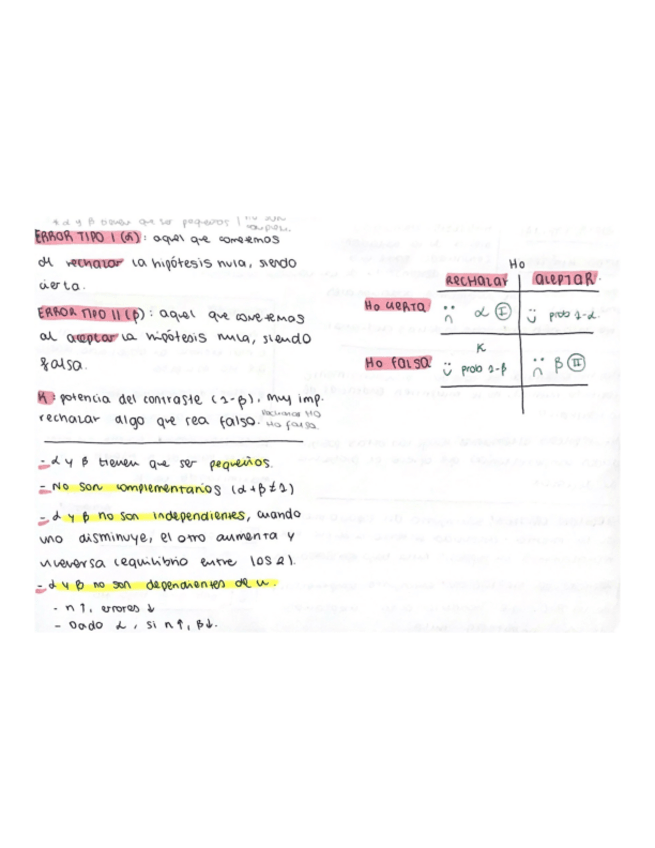 * α y β tienen que ser pequeños | no son
ERROR TIPO I (α): aquel que cometemos
al rechazar la hipótesis nula, siendo
cierta.
ERROR TIPO II (β): aquel que cometemos
al aceptar la hipótesis nula, siendo
falsa.
K: potencia del contraste (1-β), muy imp.
rechazar algo que sea falso. Rechazamos H0
H0 falsa.
- α y β tienen que ser pequeños.
- No son complementarios (α+β≠1)
- α y β no son independientes, cuando
uno disminuye, el otro aumenta y
viceversa (equilibrio entre los 2).
- α y β no son dependientes de n.
- n↑, errores ↓
- Dado α, si n↑, β↓.
Ho
RECHAZAR ACEPTAR
Ho CIERTA :( α I :) prob 1-α
K
Ho FALSA :) prob 1-β :( β II